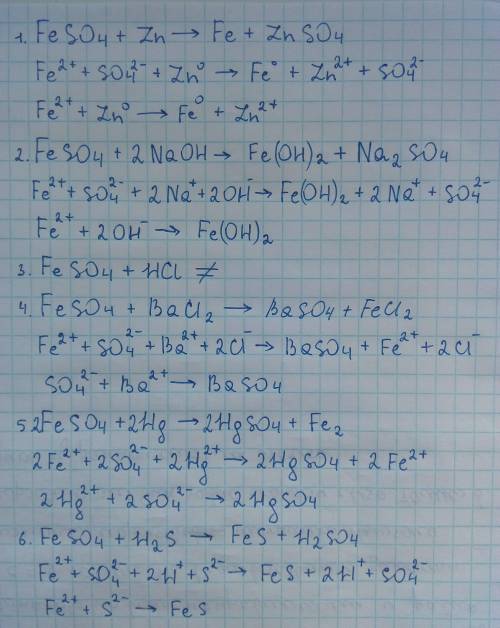 1. FeSO₄ + Zn → Fe + ZnSO₄
Fe²⁺ + SO₄²⁻ + Zn⁰ → Fe⁰ + Zn²⁺ + SO₄²⁻
Fe²⁺ + Zn⁰ → Fe⁰ + Zn²⁺
2. FeSO₄ + 2NaOH → Fe(OH)₂ + Na₂SO₄
Fe²⁺ + SO₄²⁻ + 2Na⁺ + 2OH⁻ → Fe(OH)₂ + 2Na⁺ + SO₄²⁻
Fe²⁺ + 2OH⁻ → Fe(OH)₂
3. FeSO₄ + HCl ≠
4. FeSO₄ + BaCl₂ → BaSO₄ + FeCl₂
Fe²⁺ + SO₄²⁻ + Ba²⁺ + 2Cl⁻ → BaSO₄ + Fe²⁺ + 2Cl⁻
SO₄²⁻ + Ba²⁺ → BaSO₄
5 2FeSO₄ + 2Hg → 2HgSO₄ + Fe₂
2Fe²⁺ + 2SO₄²⁻ + 2Hg²⁺ → 2HgSO₄ + 2Fe²⁺
2Hg²⁺ + 2SO₄²⁻ → 2HgSO₄
6. FeSO₄ + H₂S → FeS + H₂SO₄
Fe²⁺ + SO₄²⁻ + 2H⁺ + S²⁻ → FeS + 2H⁺ + SO₄²⁻
Fe²⁺ + S²⁻ → FeS